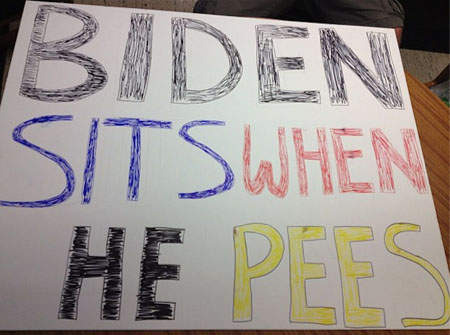 BIDEN
SITS WHEN
HE PEES